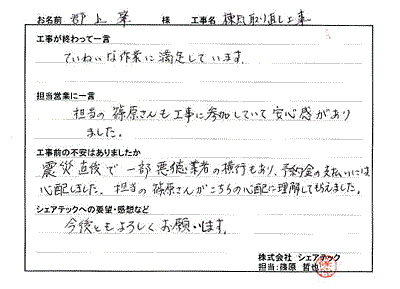 お名前 郡上 肇 様 工事名 棟瓦取り直し工事
工事が終わって一言
ていねいな作業に満足しています。
担当営業に一言
担当の篠原さんも工事に参加していて安心感があり
ました。
工事前の不安はありましたか
震災直後で一部悪徳業者の横行もあり、予約金の支払いには
心配しました。担当の篠原さんがこちらの心配に理解してもらえました。
シェアテックへの要望・感想など
今後ともよろしくお願いします。
株式会社 シェアテック
担当:篠原 哲也